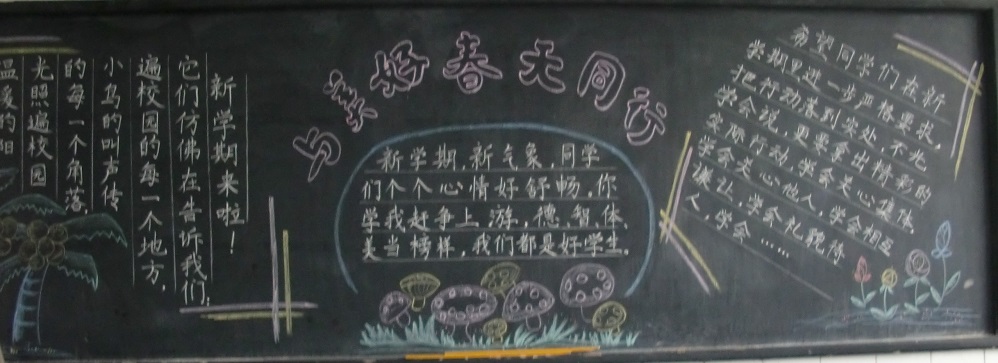 温暖的阳
光照遍校园
的每一个角落.
小鸟的叫声传
遍校园的每一个地方,
它们仿佛在告诉我们:
新学期来啦!
与美好春天同行
新学期,新气象,同学
们个个心情好舒畅,你
学我赶争上游,德、智、体、
美当榜样,我们都是好学生.
希望同学们在新
学期里进一步严格要求,
把行动落到实处,不光
学会说,更要拿出精彩的
实际行动,学会关心集体,
学会关心他人,学会相互
谦让,学会礼貌待
人,学会……